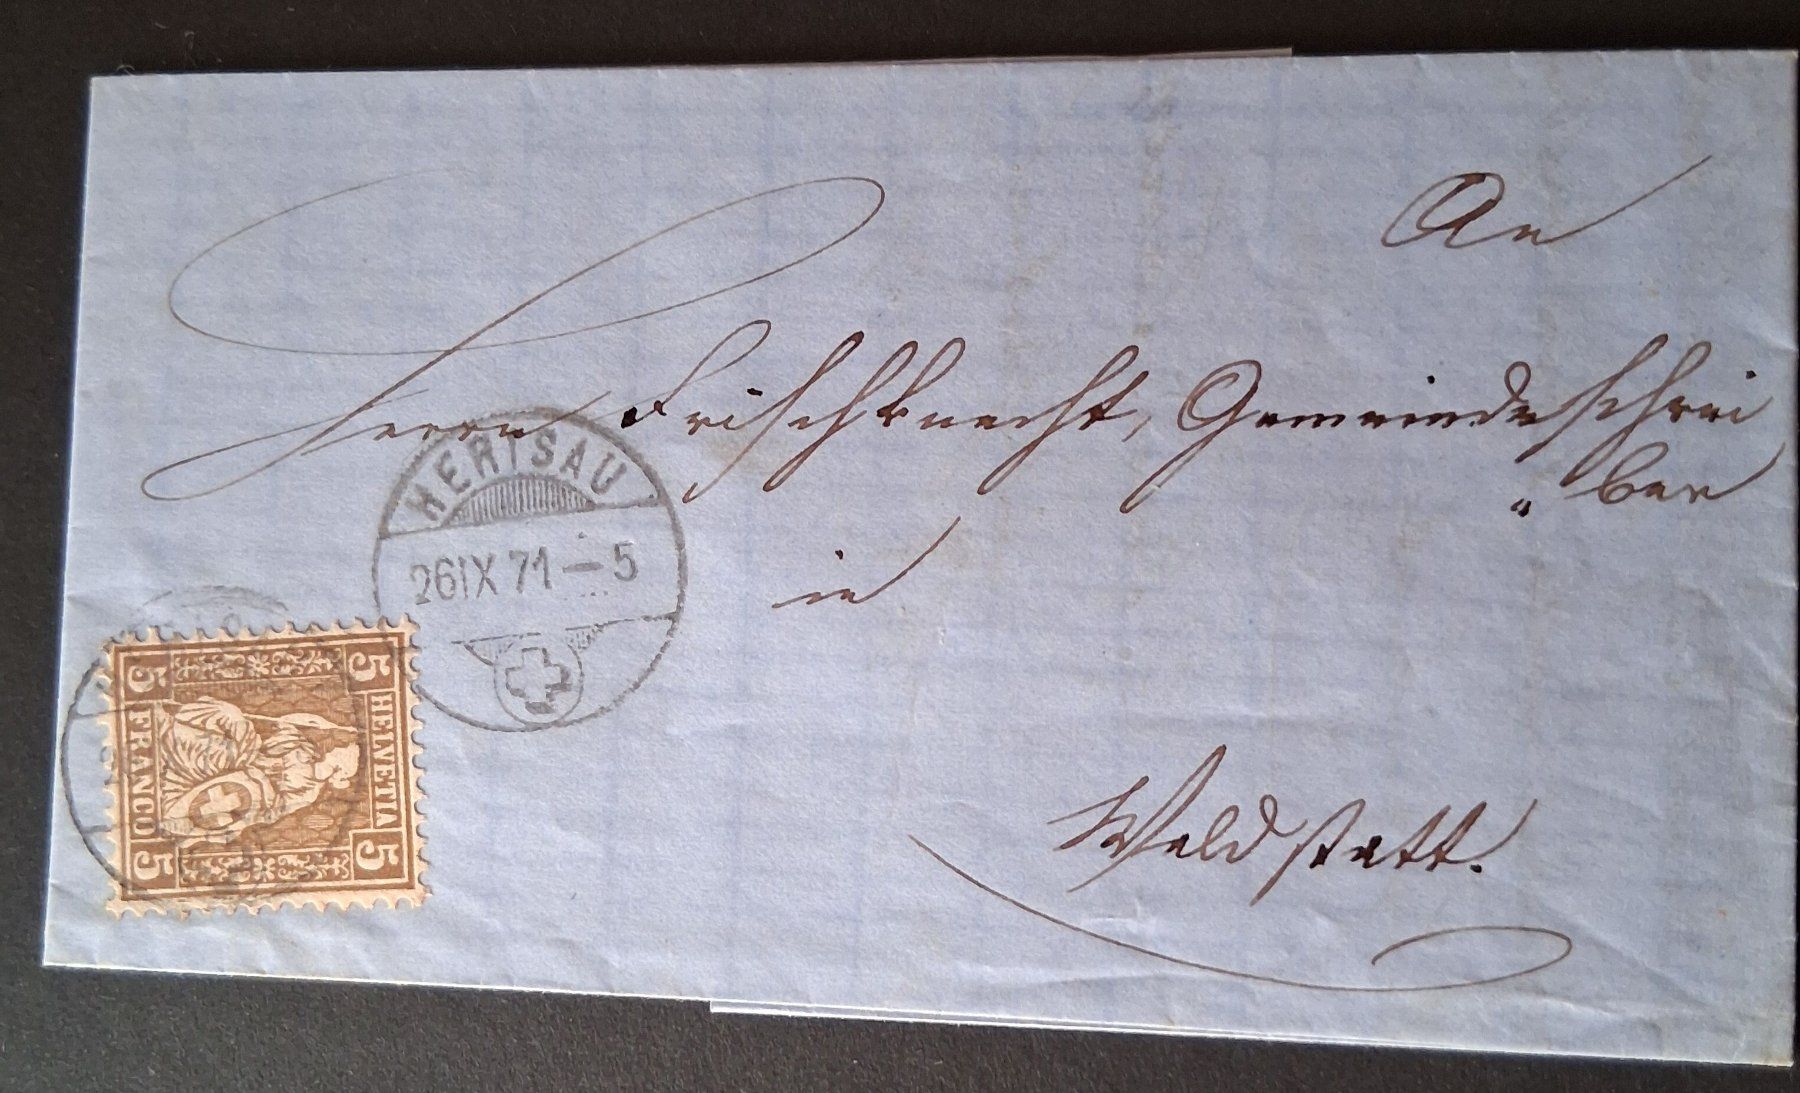 An
Herrn Frischknecht, Gemeindeschrei
„ ber
in
Waldstatt.
HERISAU
26 IX 71 – 5
5 HELVETIA 5
5 FRANCO 5